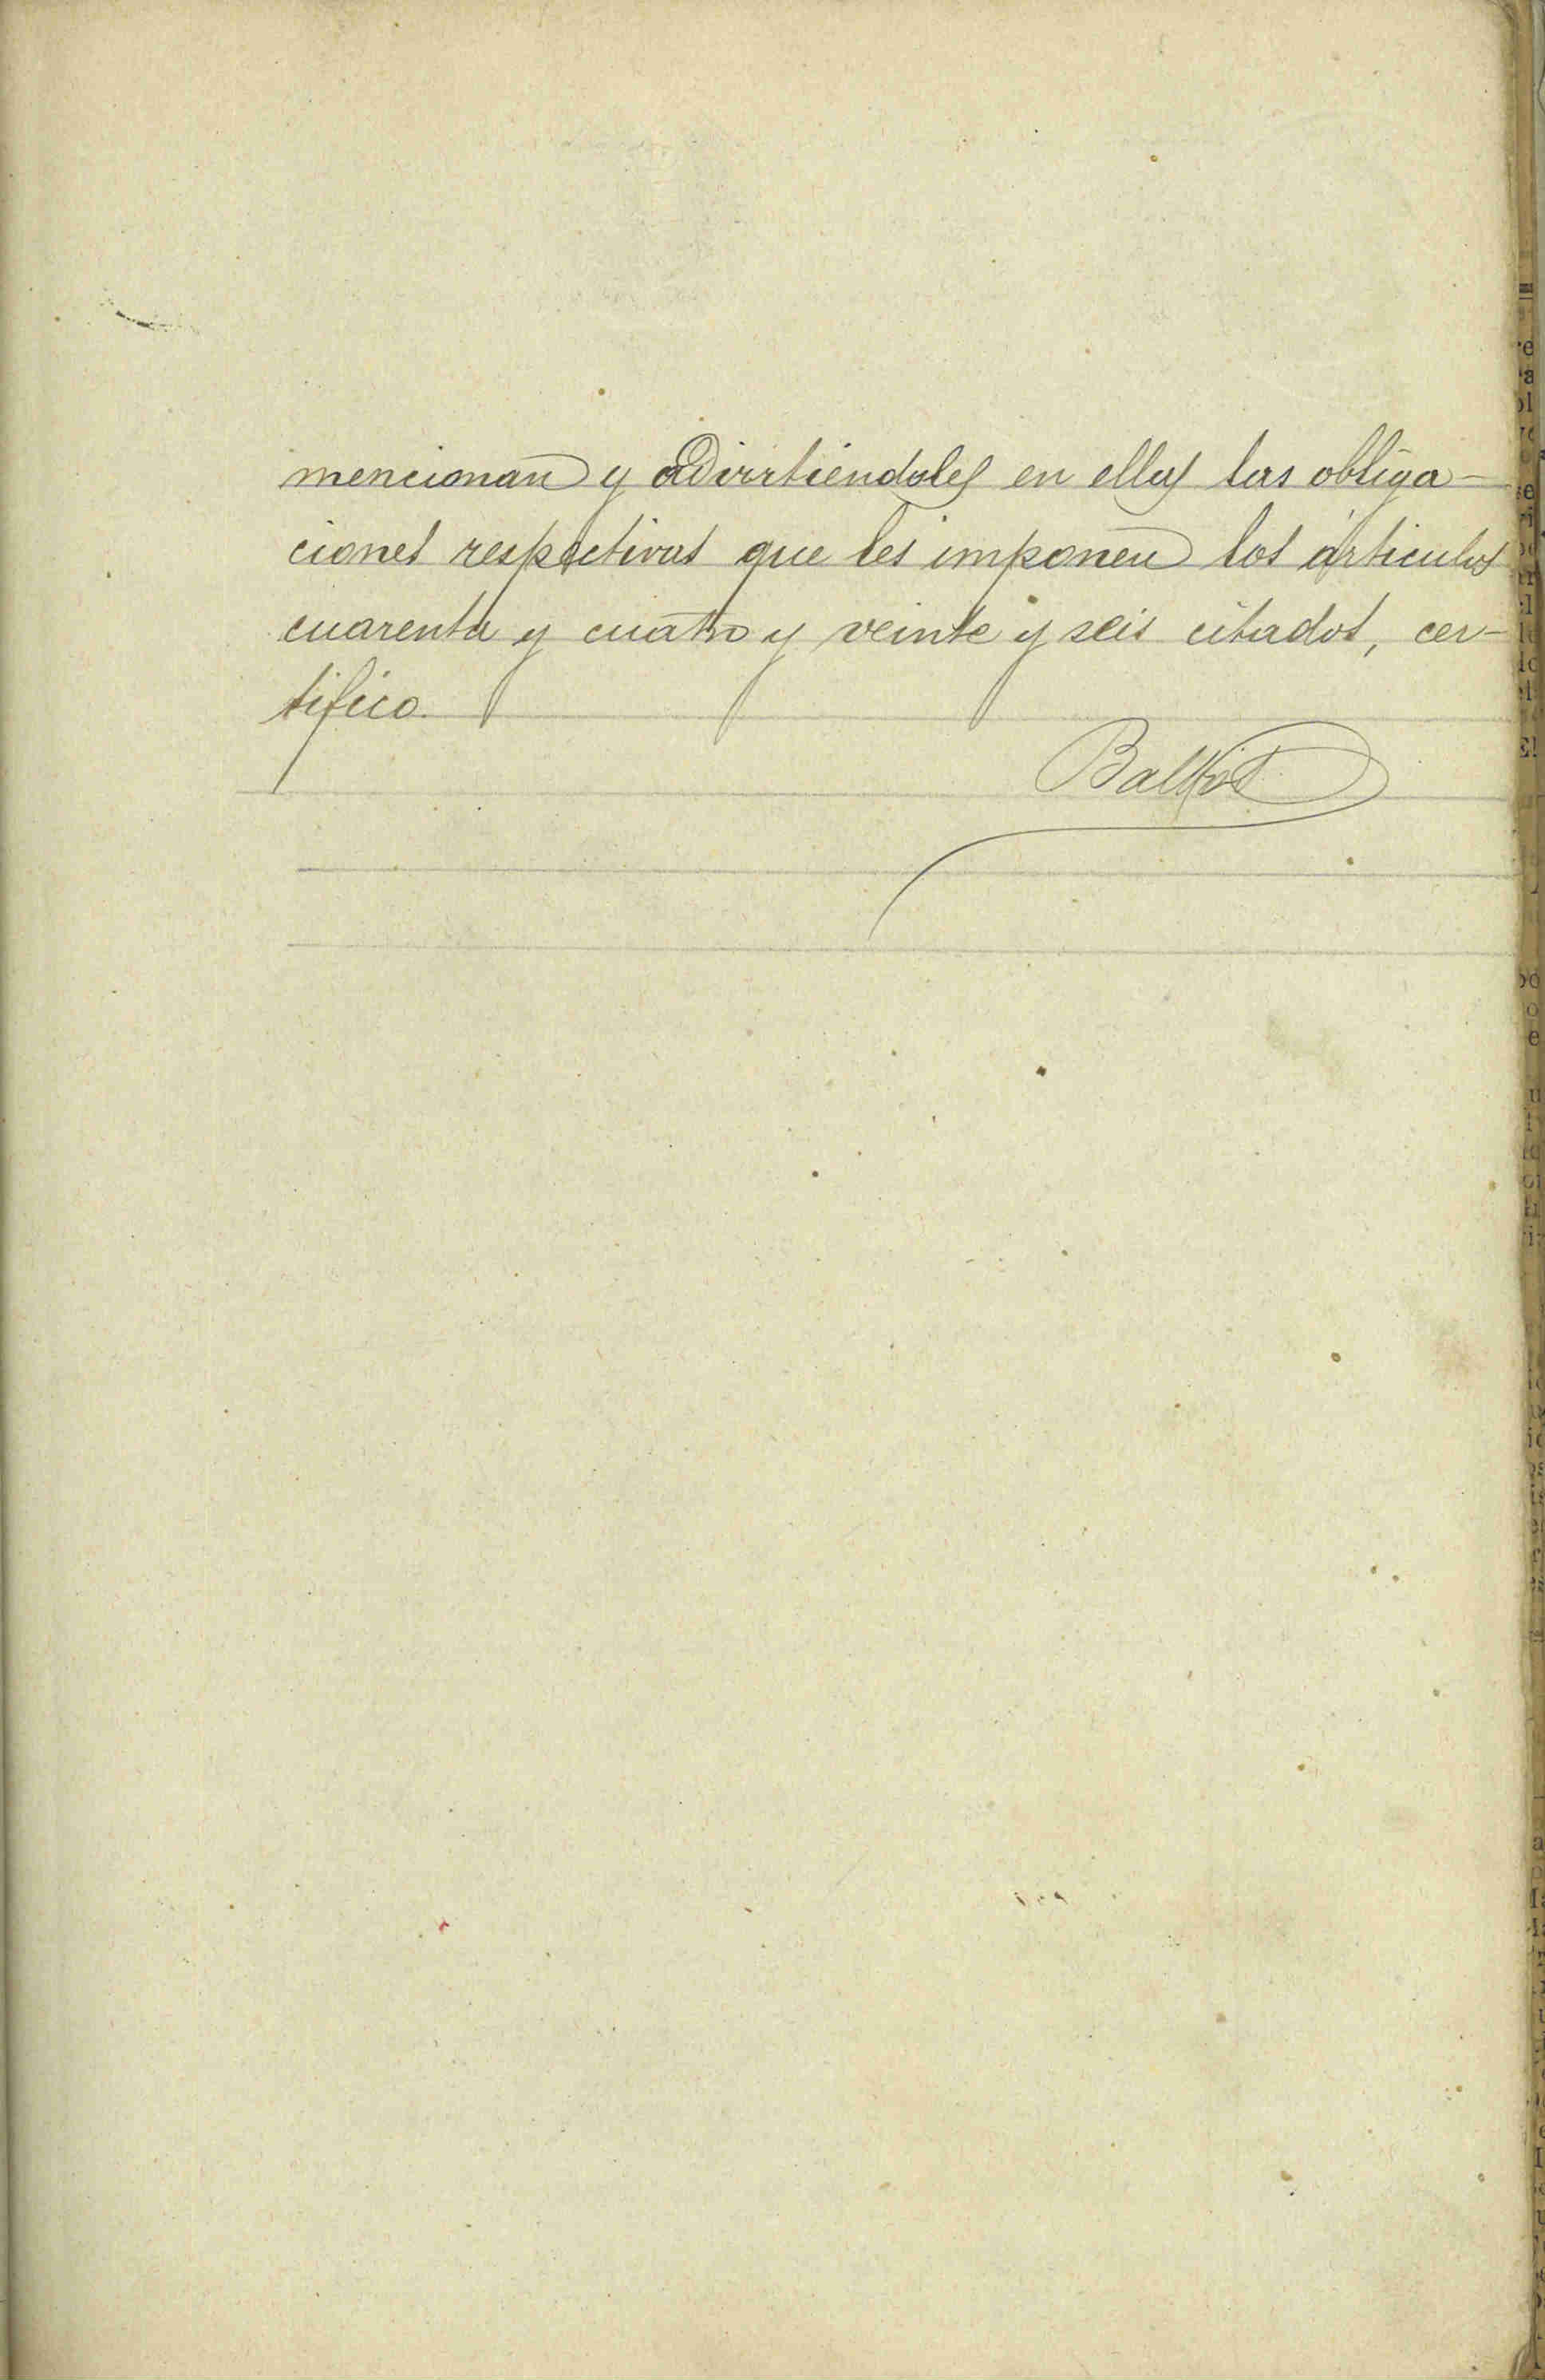 mencionan y advirtiéndoles en ellas las obliga-
ciones respectivas que les imponen los artículos
cuarenta y cuatro y veinte y seis citados, cer-
tifico.